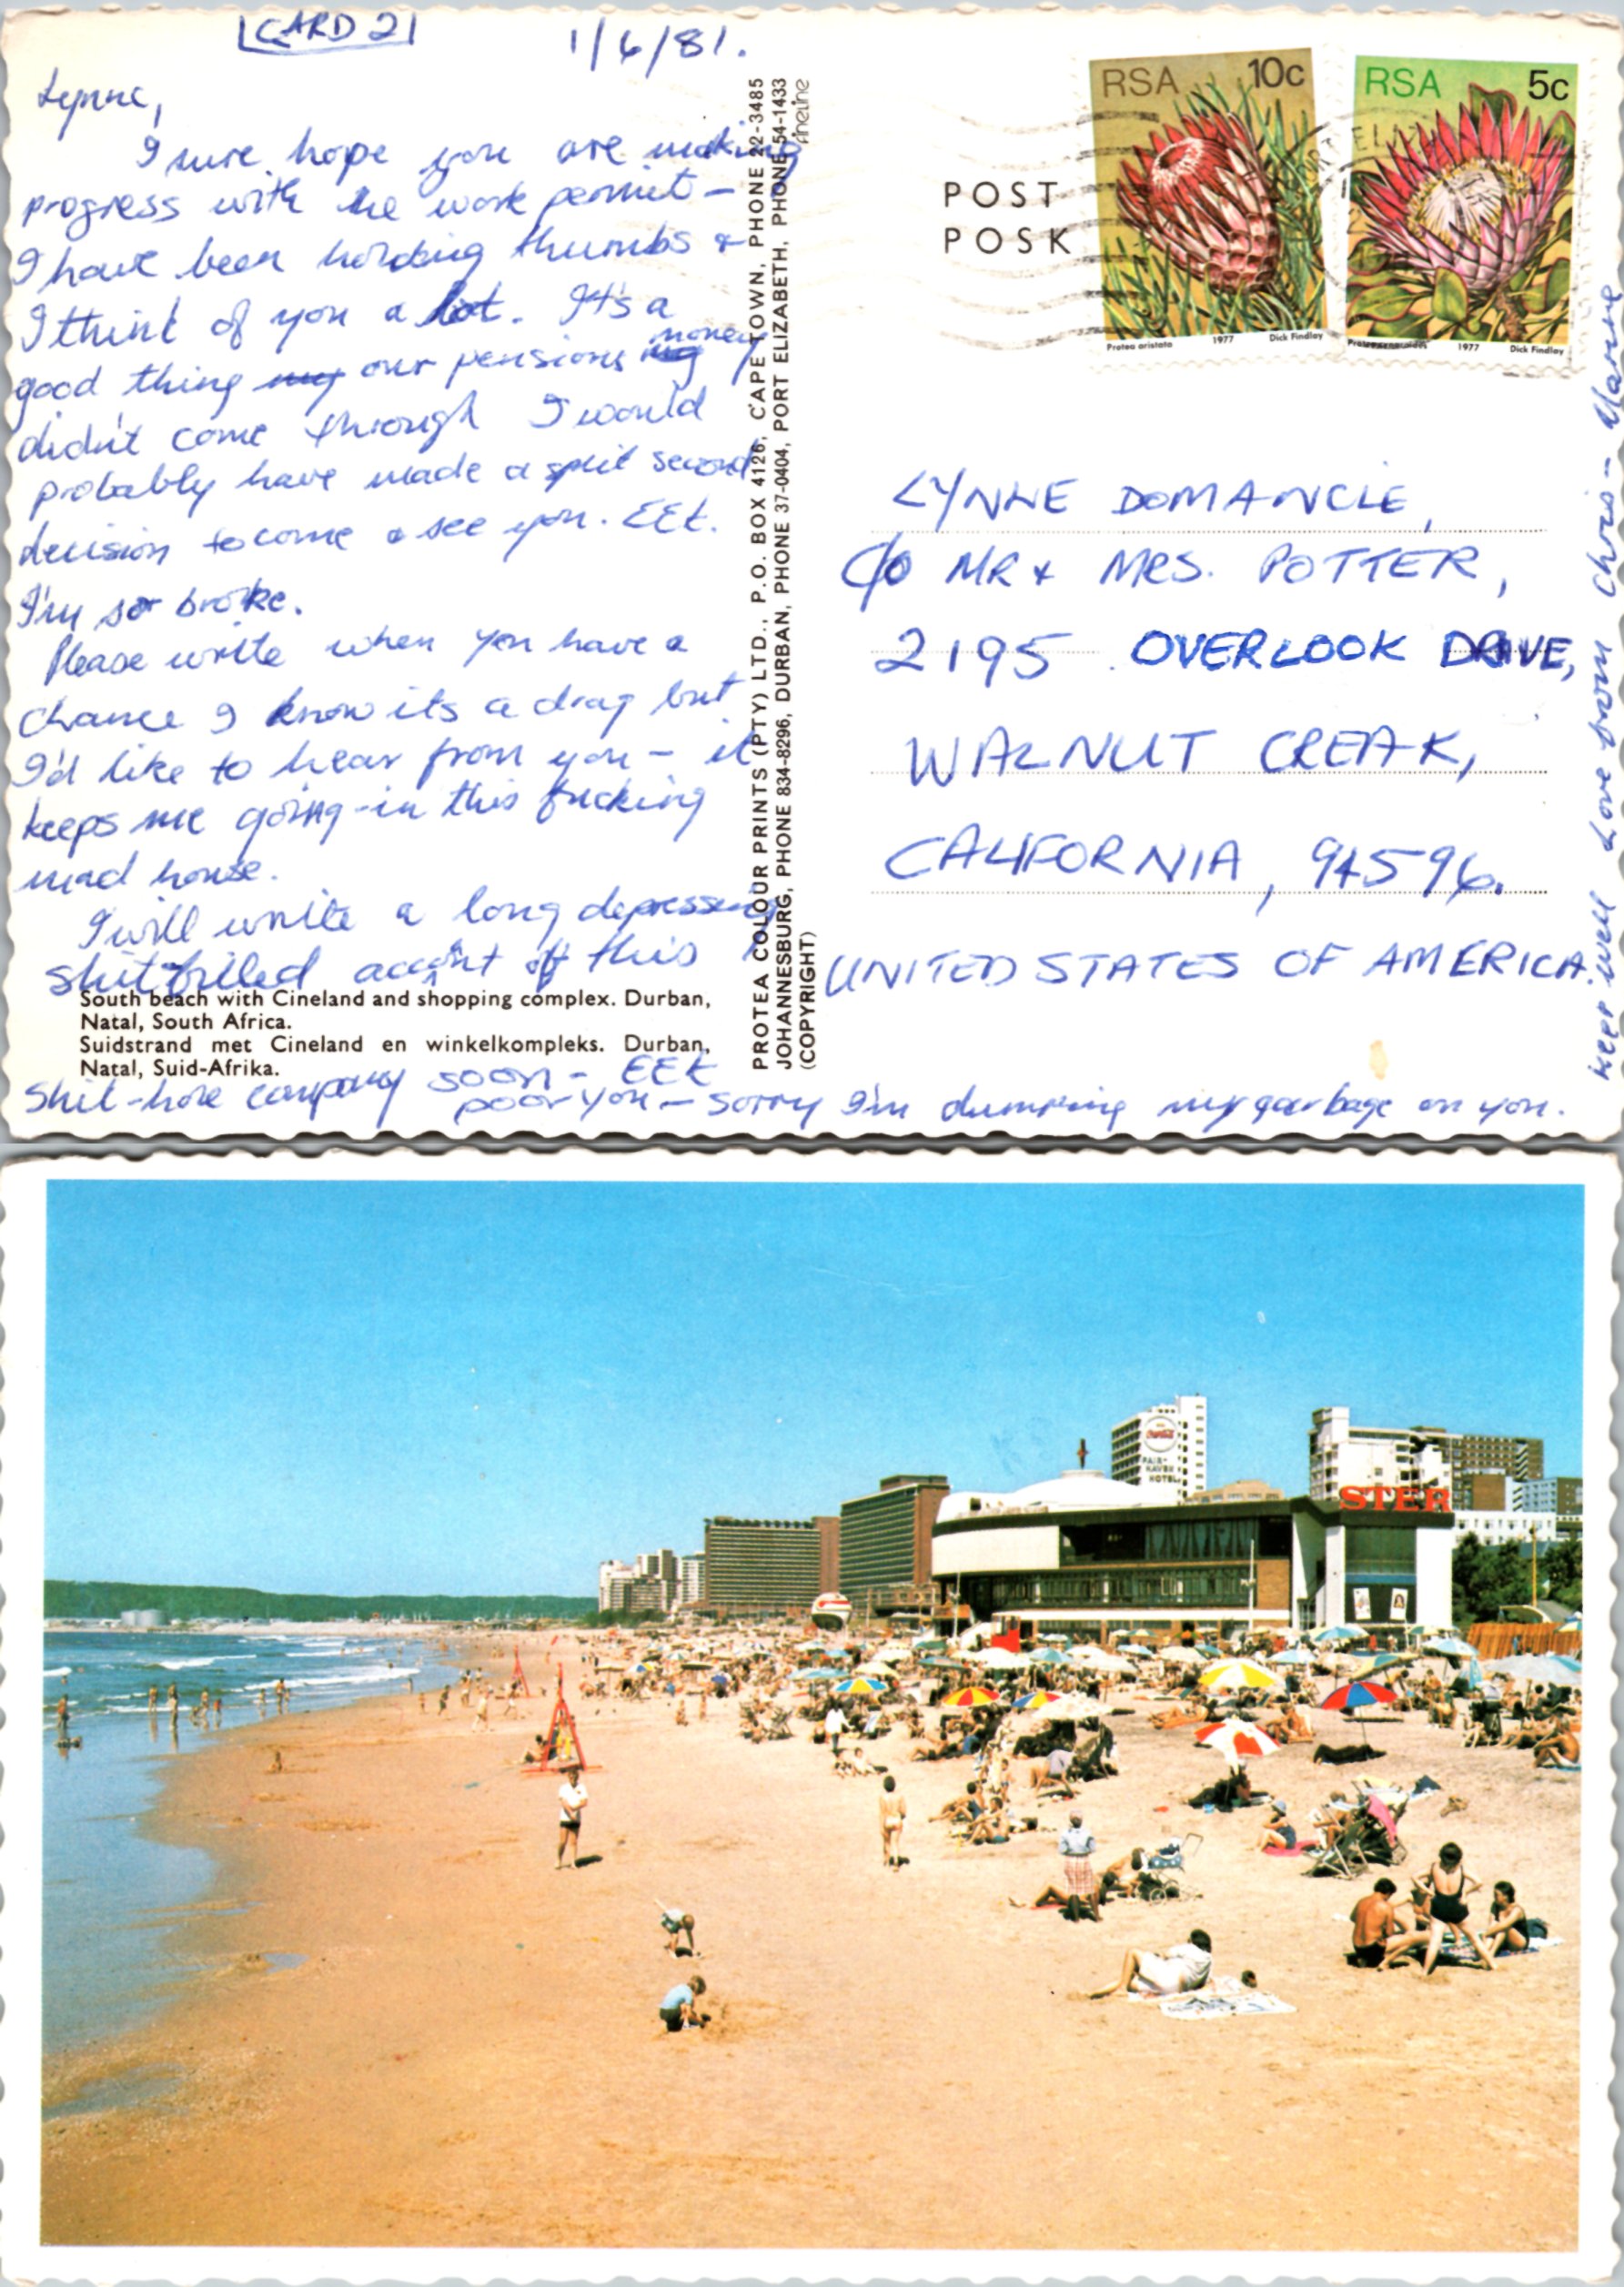 CARD 2
1/6/81.
Lynne,
I sure hope you are making
progress with the work permit -
I have been holding thumbs &
I think of you a lot. It's a
good thing my our pensions money
didn't come through I would
probably have made a split second
decision to come & see you. EEk.
I'm so broke.
Please write when you have a
chance I know its a drag but
I'd like to hear from you - it
keeps me going - in this fucking
mad house.
I will write a long depressing
shit filled account of this
shit-hole company soon - EEk
poor you - sorry I'm dumping my garbage on you.
Keep well Love from Chris -
South beach with Cineland and shopping complex. Durban,
Natal, South Africa.
Suidstrand met Cineland en winkelkompleks. Durban,
Natal, Suid-Afrika.
PROTEA COLOUR PRINTS (PTY) LTD., P.O. BOX 4126, CAPE TOWN, PHONE 22-3485
JOHANNESBURG, PHONE 834-8296, DURBAN, PHONE 37-0404, PORT ELIZABETH, PHONE 54-1433
(COPYRIGHT)
fineline
POST
POSK
RSA 10c
Protea aristata 1977 Dick Findlay
RSA 5c
1977 Dick Findlay
LYNNE DOMANCIE,
c/o MR & MRS. POTTER,
2195 OVERLOOK DRIVE,
WALNUT CREAK,
CALIFORNIA, 94596.
UNITED STATES OF AMERICA.
Coca-Cola
FAIR
HAVEN
HOTEL
STER